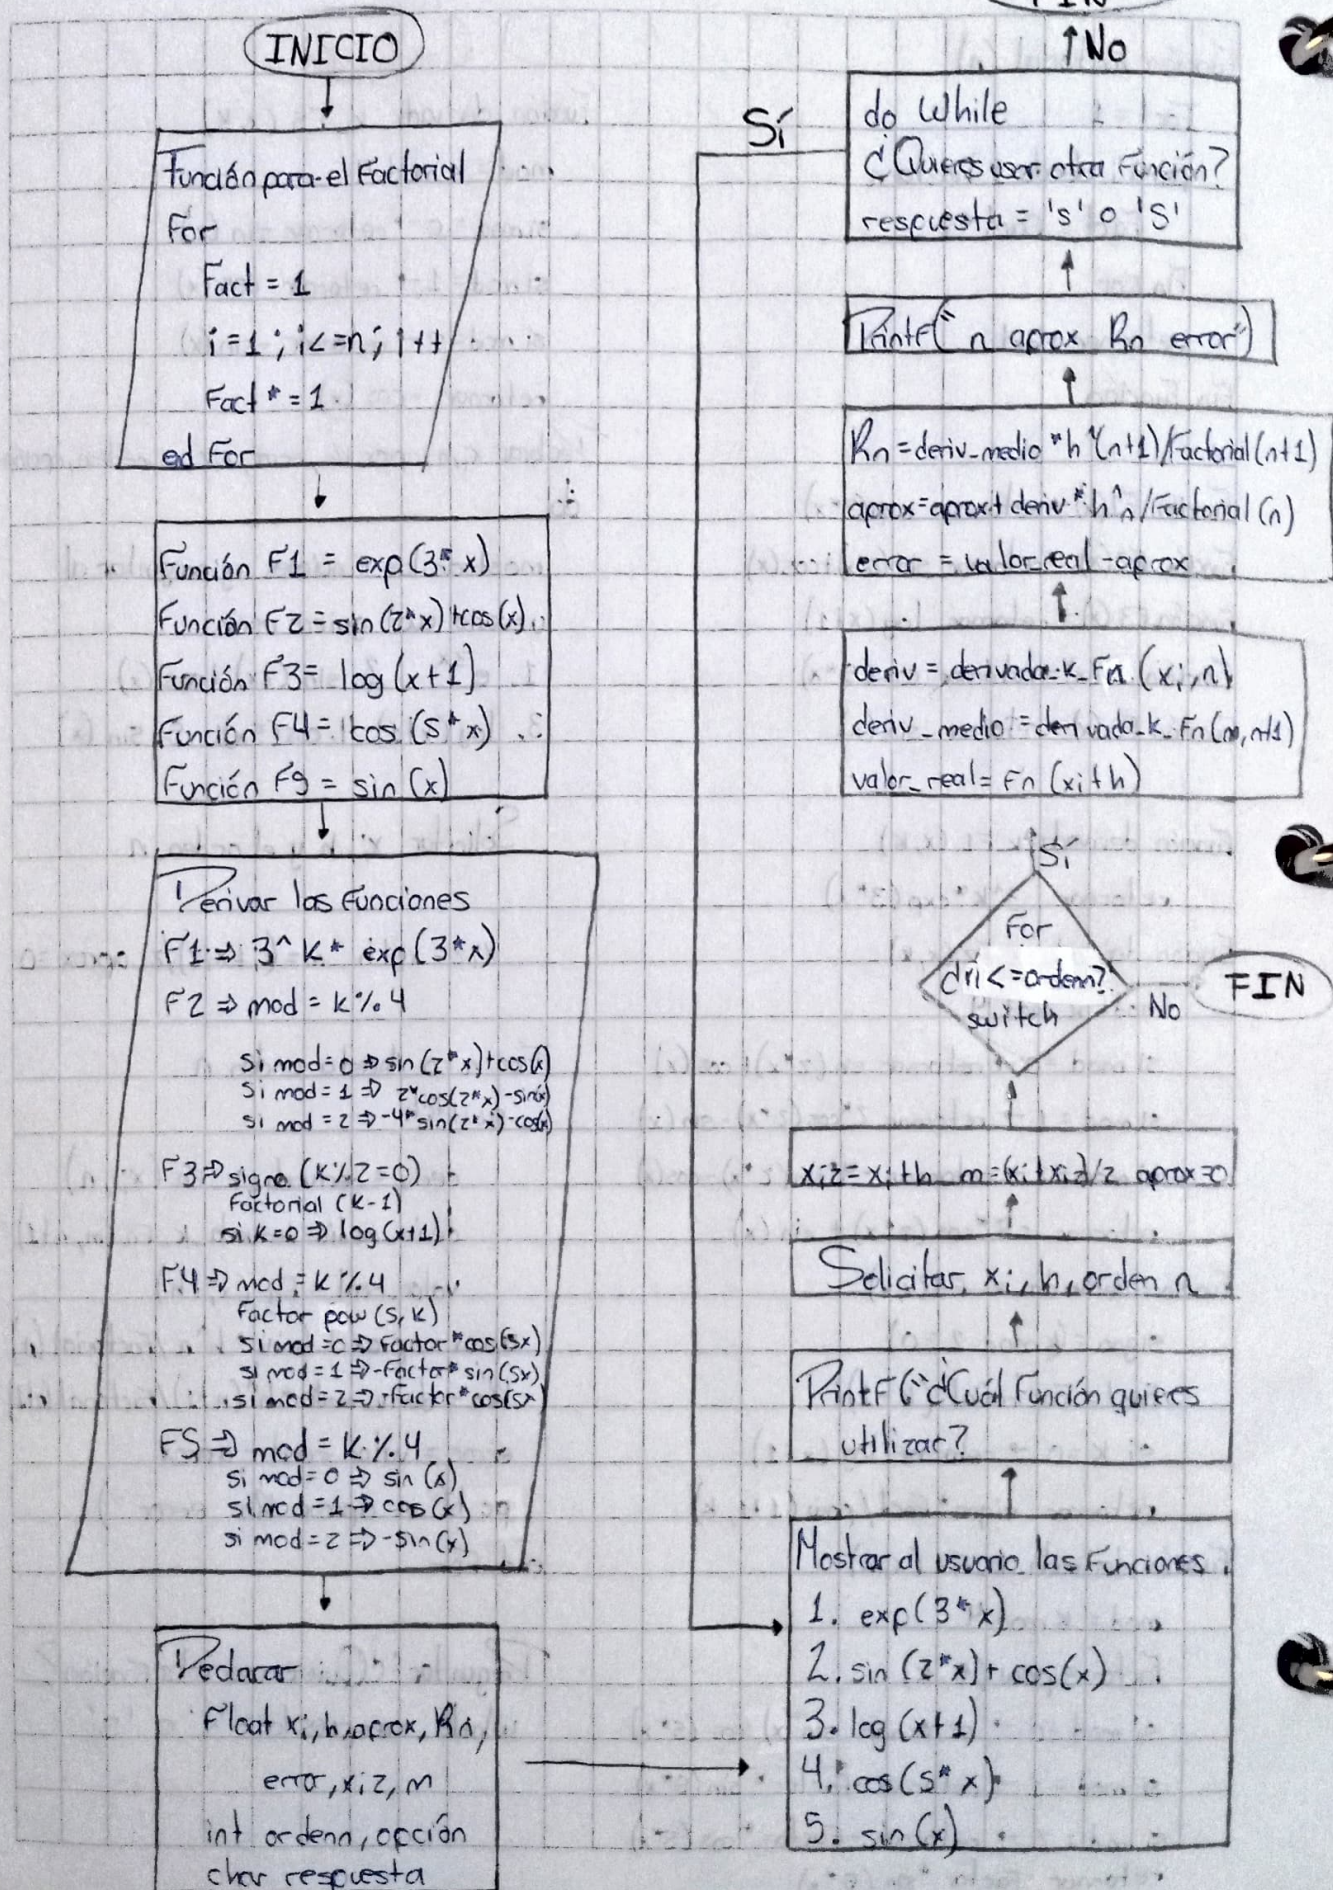 INICIO
Función para el Factorial
For
Fact = 1
i=1; i<=n; i++
Fact *= 1
ed For
Función F1 = exp(3*x)
Función F2 = sin(2*x)+cos(x)
Función F3= log(x+1)
Función F4= cos (5*x)
Función F5 = sin(x)
Derivar las Funciones
F1 ⇒ 3^K* exp(3*x)
F2 ⇒ mod = K%4
Si mod=0 ⇒ sin(2*x)+cos(x)
Si mod=1 ⇒ 2*cos(2*x)-sin(x)
si mod=2 ⇒ -4*sin(2*x)-cos(x)
F3 ⇒ signo (K%2=0)
Factorial (K-1)
si K=0 ⇒ log(x+1)
F4 ⇒ mod = K%4
Factor pow(5,K)
si mod=0 ⇒ Factor*cos(5x)
si mod=1 ⇒ -Factor*sin(5x)
si mod=2 ⇒ -Factor*cos(5x)
F5 ⇒ mod = K%4
si mod=0 ⇒ sin(x)
si mod=1 ⇒ cos(x)
si mod=2 ⇒ -sin(x)
Declarar
Float xi, h, aprox, Rn,
error, xi2, m
int ordenn, opción
char respuesta
Mostrar al usuario las Funciones
1. exp(3*x)
2. sin(2*x)+cos(x)
3. log(x+1)
4. cos(5*x)
5. sin(x)
PrintF("¿Cuál Función quieres
utilizar?
Solicitar xi, h, orden n
xi2=xi+h m=(xi+xi2)/2 aprox=0
For
¿ri<=ordenn?
switch
No
FIN
Sí
deriv = derivada_k_Fn(xi,n)
deriv_medio = derivada_k_Fn(m,n+1)
valor_real= Fn(xi+h)
Rn=deriv_medio*h^(n+1)/Factorial(n+1)
aprox=aprox+deriv*h^n/Factorial(n)
error = valor_real-aprox
PrintF("n aprox Rn error")
do While
¿Quieres usar otra Función?
respuesta = 's' o 'S'
Sí
No
FIN